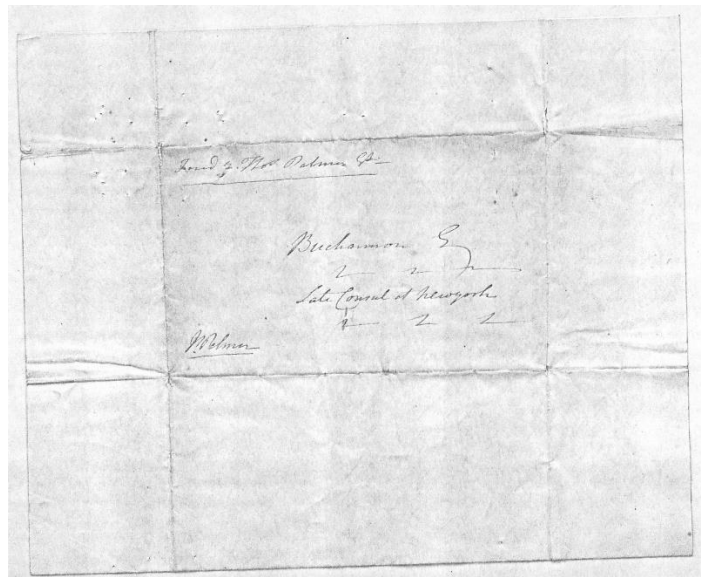 Palmer Esq
Buchannon Esq
Late Consul at Newyork
Palmer